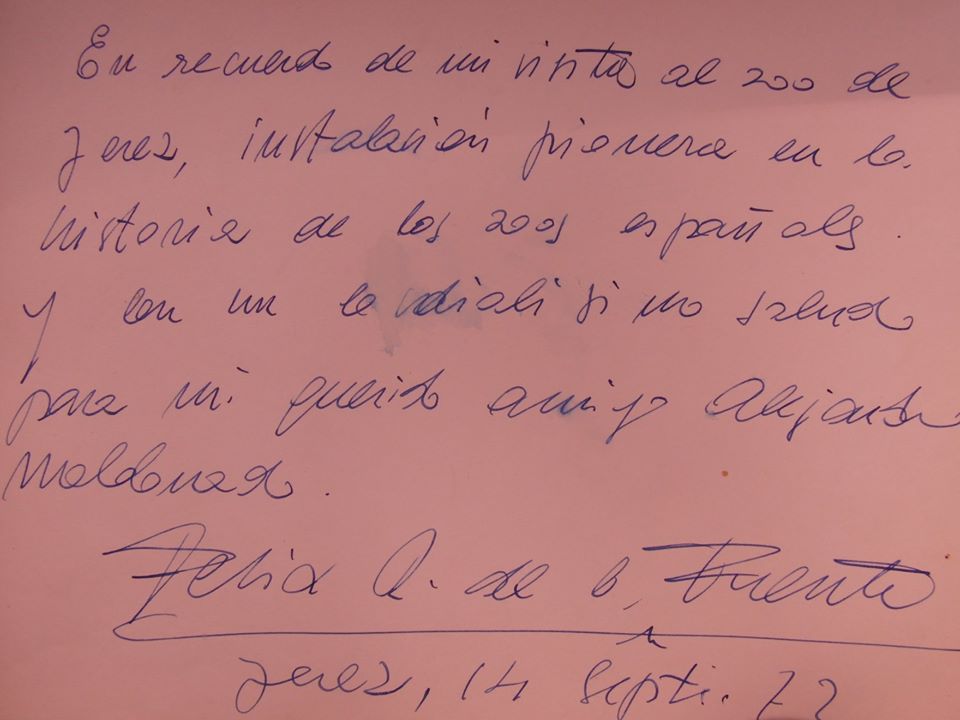 En recuerdo de mi visita al zoo de
Jerez, instalación pionera en la
historia de los zoos españoles.
Y con un cordialisimo saludo
para mi querido amigo Alejandro
Maldonado.
Felix R. de la Fuente
Jerez, 14 Septi. 72